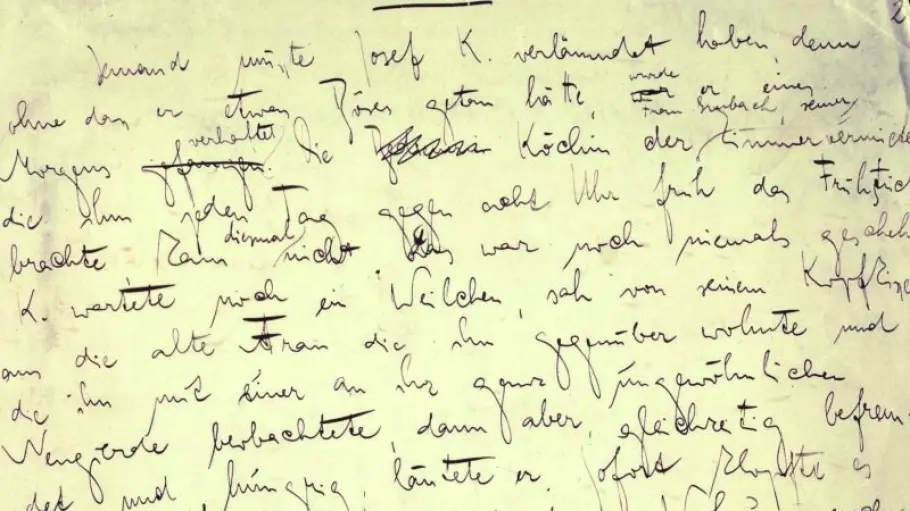 2
Jemand musste Josef K. verläumdet haben, denn
ohne dass er etwas Böses getan hätte, wurde er eines
Frau Grubach, seiner
verhaftet
Morgens gefangen. Die Köchin der Zimmervermiete
die ihm jeden Tag gegen acht Uhr früh das Frühstück
diesmal
brachte, kam nicht. Das war noch niemals gescheh
K. wartete noch ein Weilchen, sah von seinem Kopfkisse
aus die alte Frau die ihm gegenüber wohnte und
die ihn mit einer an ihr ganz ungewöhnlichen
Neugierde beobachtete, dann aber, gleichzeitig befrem-
det und hungrig, läutete er. Sofort klopfte es